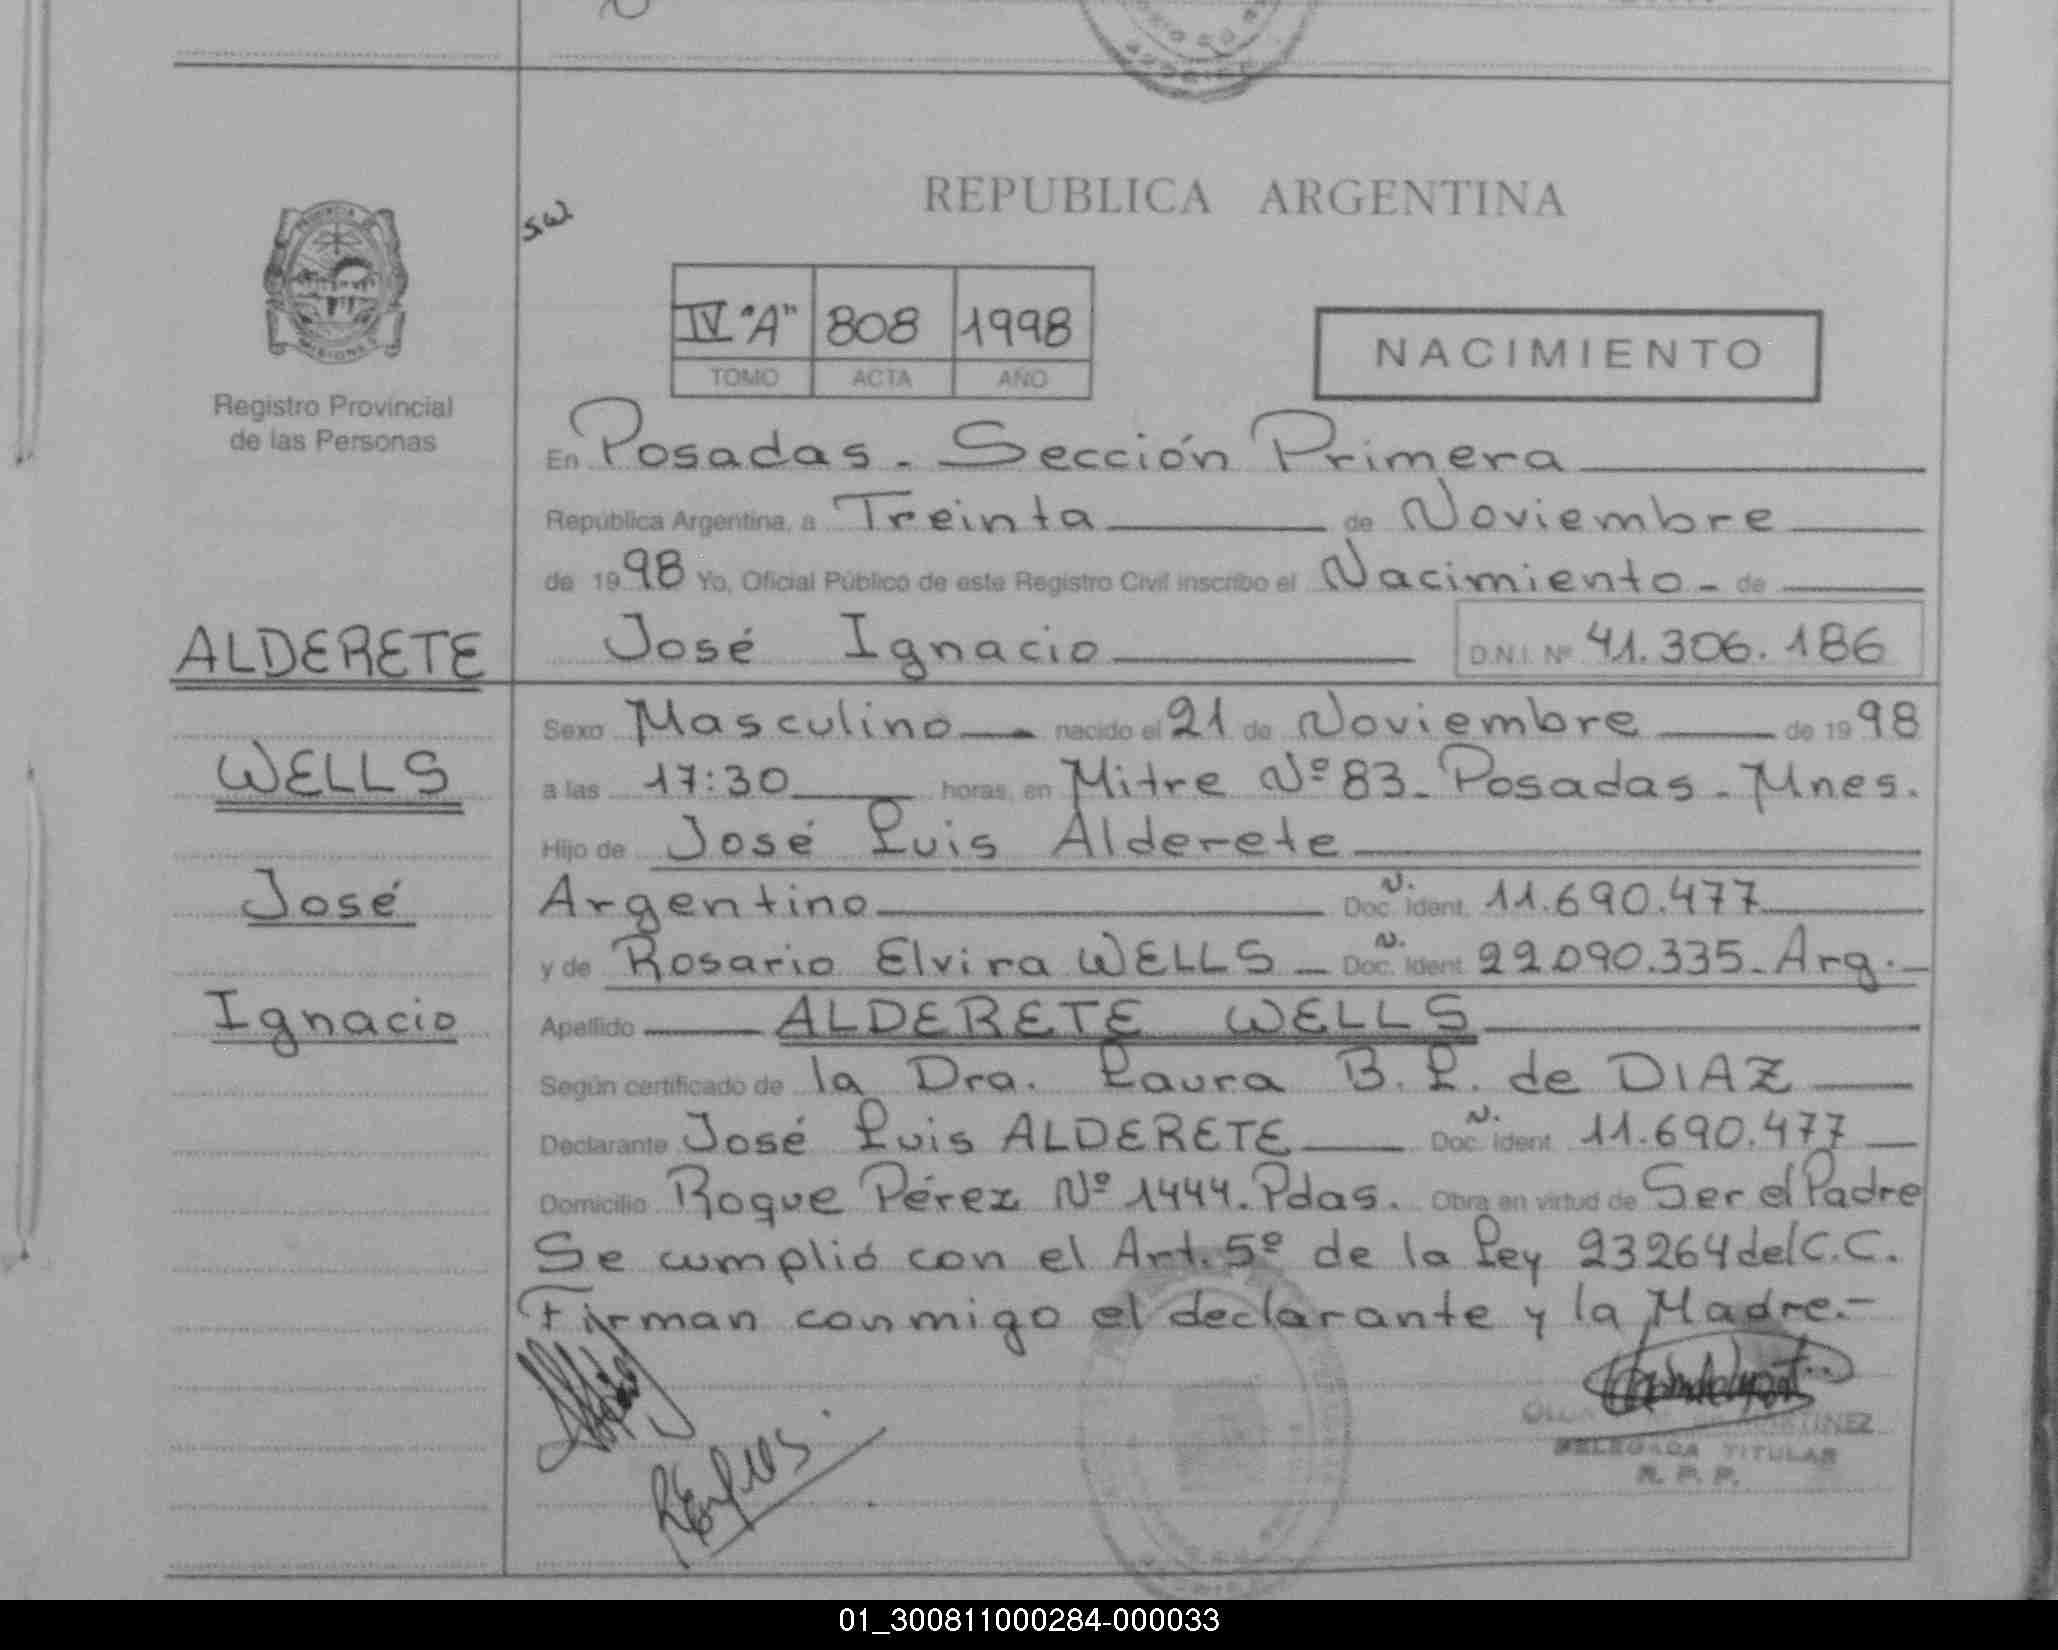 REPUBLICA ARGENTINA
PROVINCIA DE
MISIONES
Registro Provincial
de las Personas
s.w.
IV "A" 808 1998
TOMO ACTA AÑO
NACIMIENTO
En Posadas - Sección Primera
República Argentina, a Treinta de Noviembre
de 1998 Yo, Oficial Público de este Registro Civil inscribo el Nacimiento - de
José Ignacio D.N.I. Nº 41.306.186
ALDERETE
WELLS
José
Ignacio
Sexo Masculino nacido el 21 de Noviembre de 1998
a las 17:30 horas, en Mitre Nº 83 - Posadas - Mnes.
Hijo de José Luis Alderete
Argentino Doc. N. Ident. 11.690.477
y de Rosario Elvira WELLS - Doc. N. Ident. 22.090.335 - Arg. -
Apellido ALDERETE WELLS
Según certificado de la Dra. Laura B. L. de DIAZ
Declarante José Luis ALDERETE Doc. N. Ident. 11.690.477
Domicilio Roque Pérez Nº 1444. Pdas. Obra en virtud de Ser el Padre
Se cumplió con el Art. 5º de la Ley 23264 del C.C.
Firman conmigo el declarante y la Madre.-
MARTINEZ
DELEGADA TITULAR
R. P. P.
01_300811000284-000033